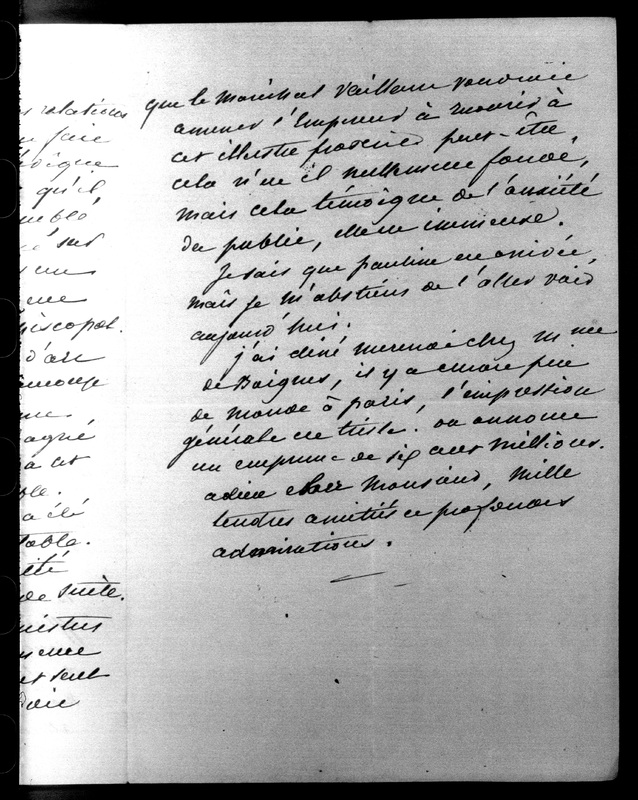 s relations
faire
qu'il
sur
me
iscopat.
d'arc
agné
a et
ble.
a été
table.
été
de suite.
nistres
et sent
que le Maréchal Vaillant voudrait
amener l'Empereur à
cet illustre proscrit peut-être,
cela n'est il nullement fondé,
mais cela témoigne de l'anxiété
du public, elle est immense.
Je sais que pauline est arrivée,
mais je m'abstiens de l'aller voir
aujourd'hui.
j'ai diné mercredi chez Mme
de Boignes, il y a encore peu
de monde à paris, l'impression
générale est triste. on annonce
un emprunt de six cent millions.
adieu cher Monsieur, mille
tendres amitiés et profondes
admirations.